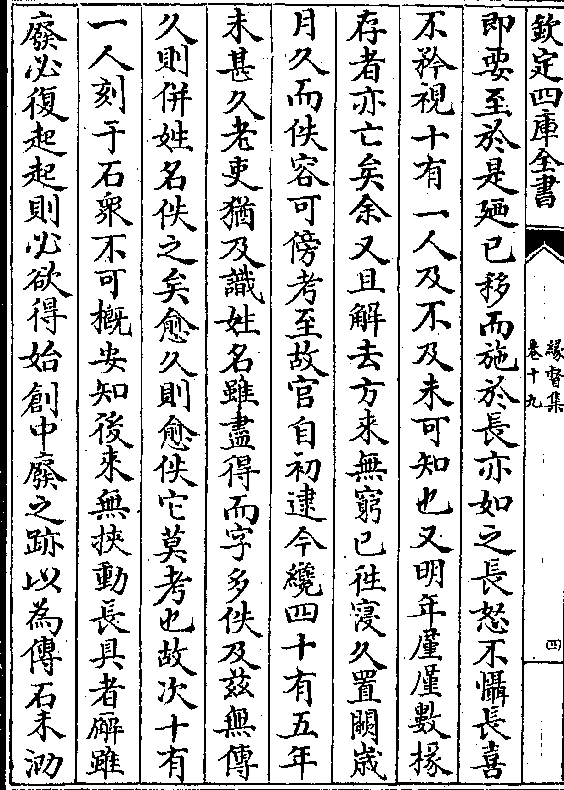 欽定四庫全書
緣督集
卷十九
四
即要至於是廼已移而施於長亦如之長怒不懾長喜
不矜視十有一人及不及未可知也又明年廑廑數椽
存者亦亡矣余又且解去方來無窮已徃寖久置闕歳
月久而佚容可傍考至故官自初逮今纔四十有五年
未甚久老吏猶及識姓名雖盡得而字多佚及茲無傳
久則併姓名佚之矣愈久則愈佚它莫考也故次十有
一人刻于石衆不可概安知後來無挾動長具者廨雖
廢必復起起則必欲得始創中廢之跡以為傳石未泐